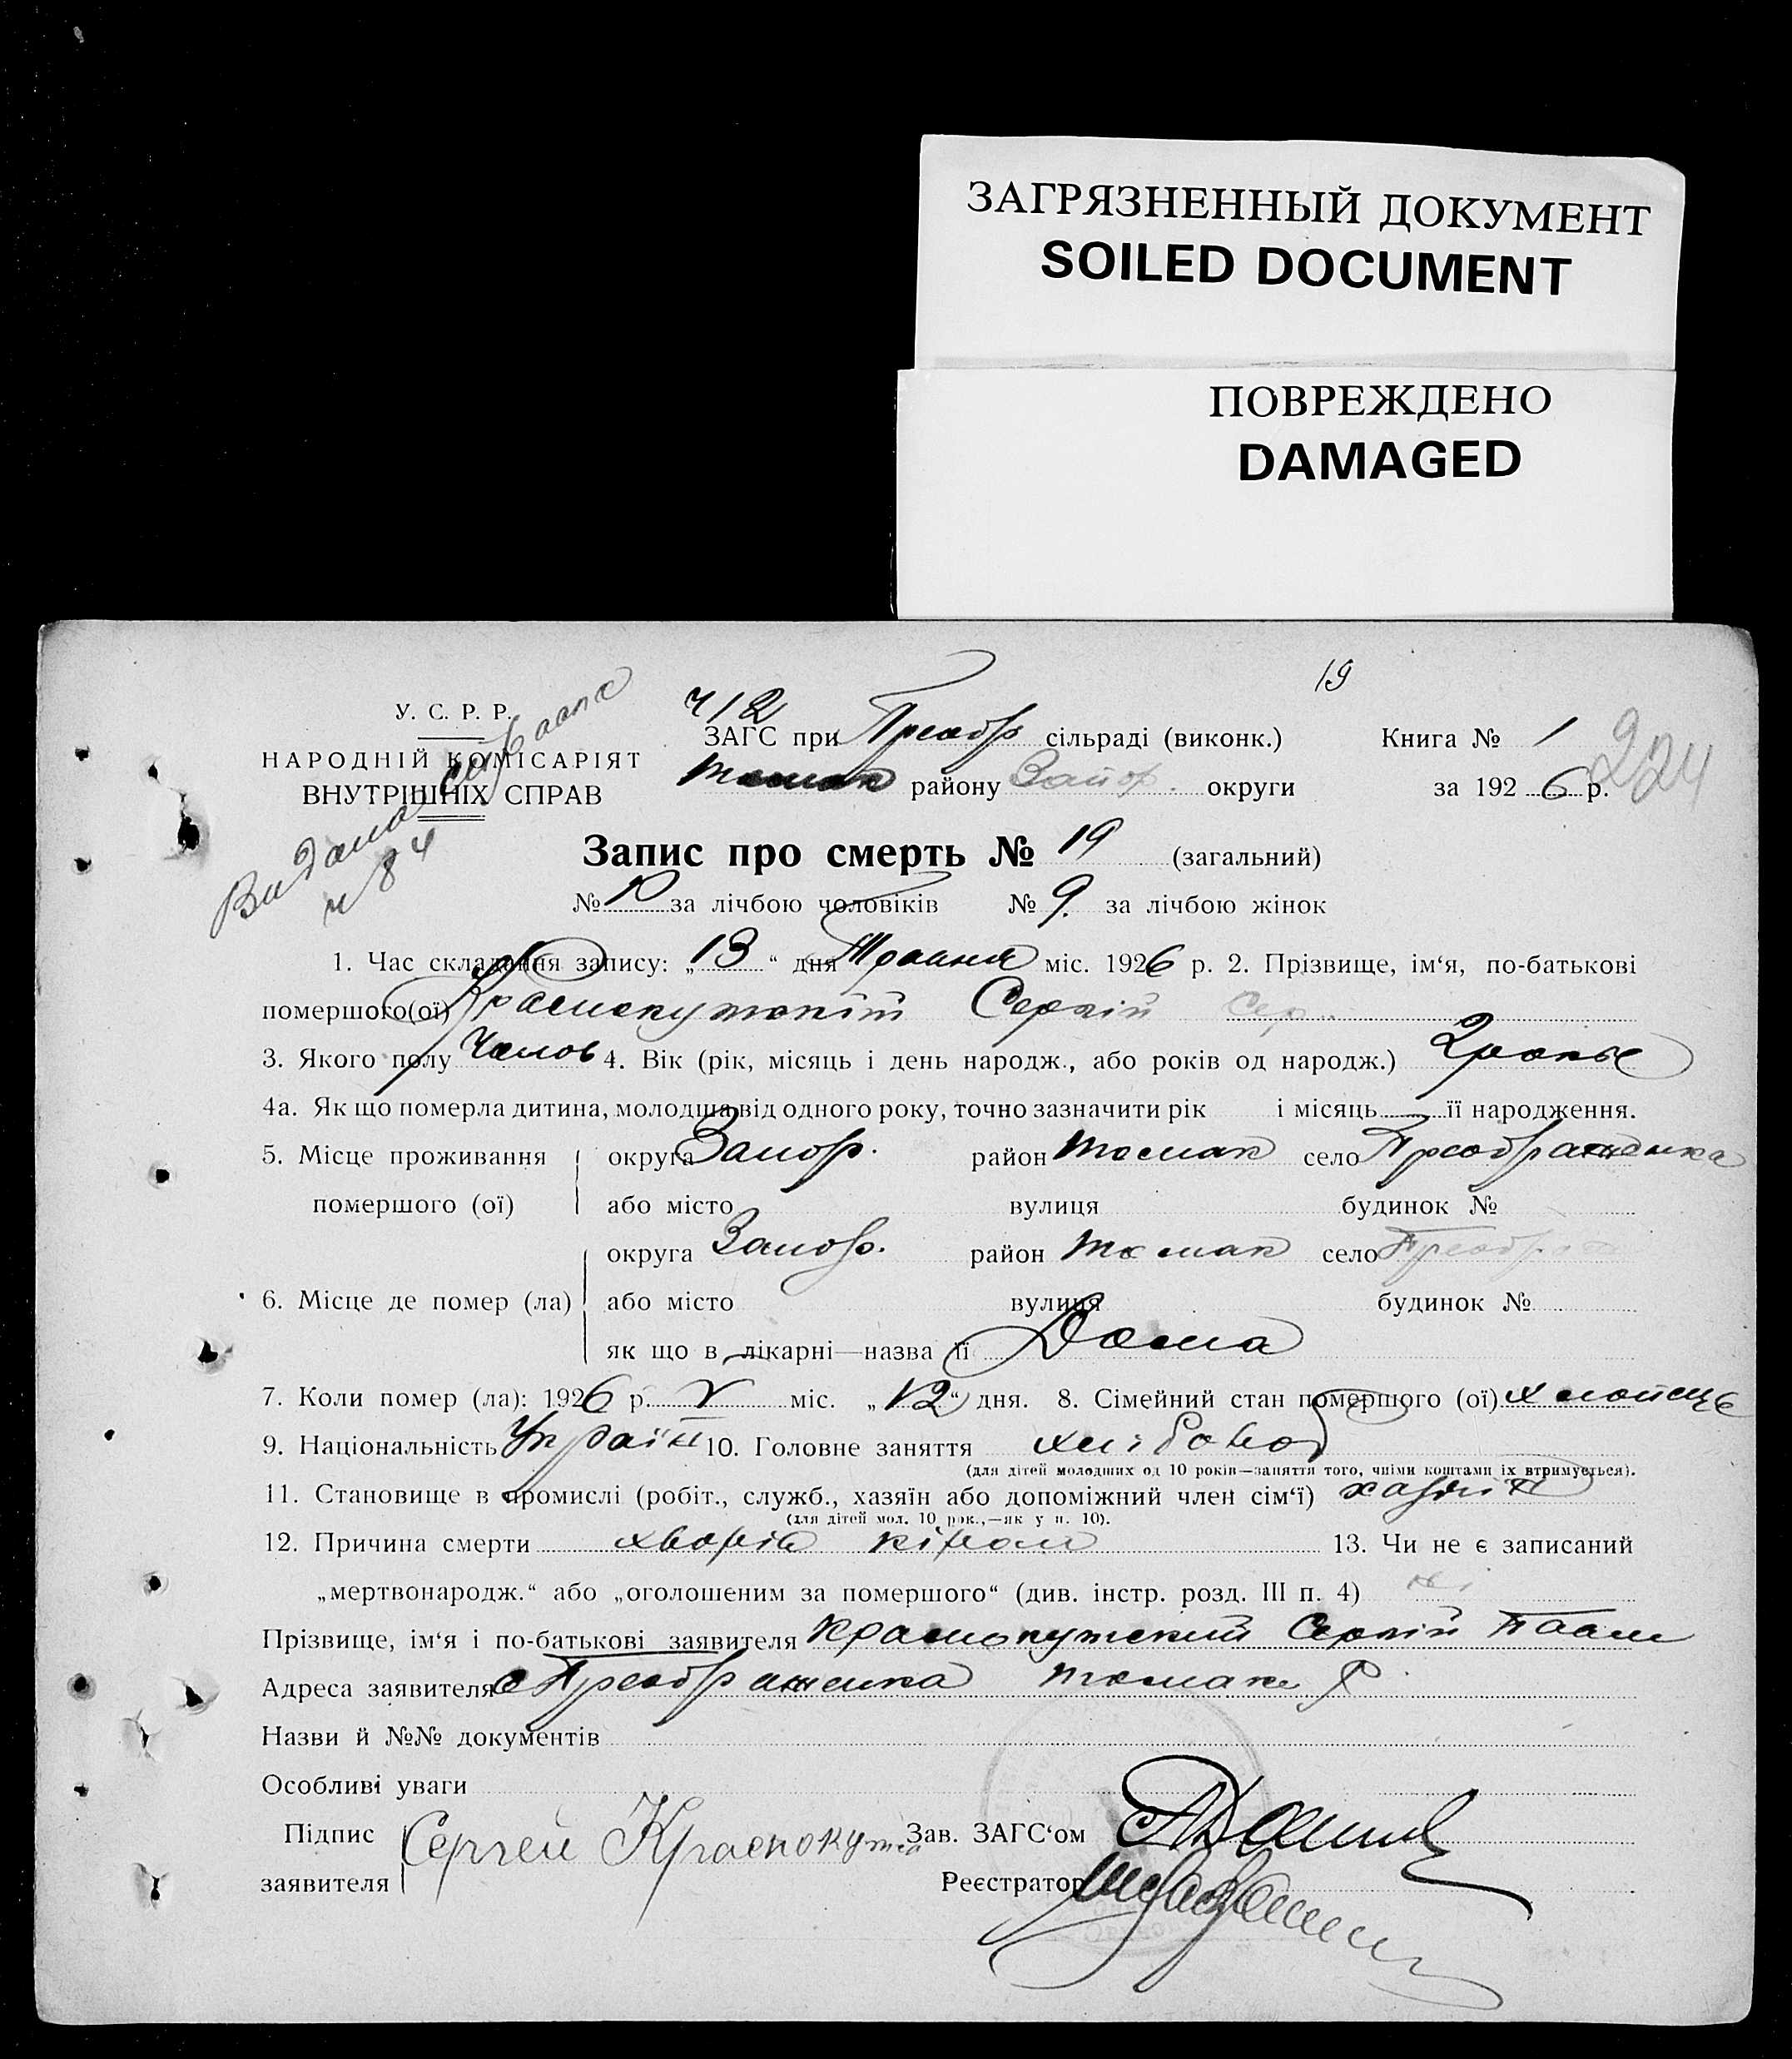 ЗАГРЯЗНЕННЫЙ ДОКУМЕНТ
SOILED DOCUMENT
ПОВРЕЖДЕНО
DAMAGED
19
У. С. Р. Р.
НАРОДНІЙ КОМІСАРІЯТ
ВНУТРІШНІХ СПРАВ
Видана
ч 84
ч12
ЗАГС при Преобр сільраді (виконк.)
Книга № 1
224
Томак району Запор. округи
за 1926 р.
Запис про смерть № 19 (загальний)
№ 10 за лічбою чоловіків № 9. за лічбою жінок
1. Час складання запису: „13“ дня Травня міс. 1926 р. 2. Прізвище, ім‘я, по-батькові
помершого(ої) Краснокуткій Сергій Сер.
3. Якого полу Чолов 4. Вік (рік, місяць і день народж., або років од народж.) 2 рокы
4а. Як що померла дитина, молодша від одного року, точно зазначити рік і місяць її народження.
5. Місце проживання округа Запор. район Томак село Преображенка
помершого (ої) або місто вулиця будинок №
округа Запор. район Томак село Преображ
6. Місце де помер (ла) або місто вулиця будинок №
як що в лікарні—назва її Дома
7. Коли помер (ла): 1926 р. V міс. „12“ дня. 8. Сімейний стан помершого (ої) хлопець
9. Національність Україн 10. Головне заняття хлібороб
(для дітей молодших од 10 років—заняття того, чиїми коштами їх втримується).
11. Становище в промислі (робіт., служб., хазяїн або допоміжний член сім‘ї) хазяїн
(для дітей мол. 10 рок.,—як у п. 10).
12. Причина смерти хворів кіром 13. Чи не є записаний
„мертвонародж.“ або „оголошеним за помершого“ (див. інстр. розд. III п. 4) ні
Прізвище, ім‘я і по-батькові заявителя Краснокутский Сергій Павл
Адреса заявителя с Преображенка Томак Р.
Назви й №№ документів
Особливі уваги
Підпис
заявителя
Сергей Краснокутск
Зав. ЗАГС‘ом
Реєстратор